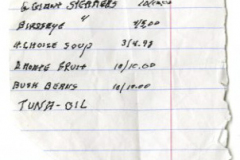 GIANT STEAMERS 10/10.00
BIRDSEYE "
A. CHOICE SOUP 3/4.98
FRUIT 10/10.00
BUSH BEANS 10/10.00
TUNA-OIL